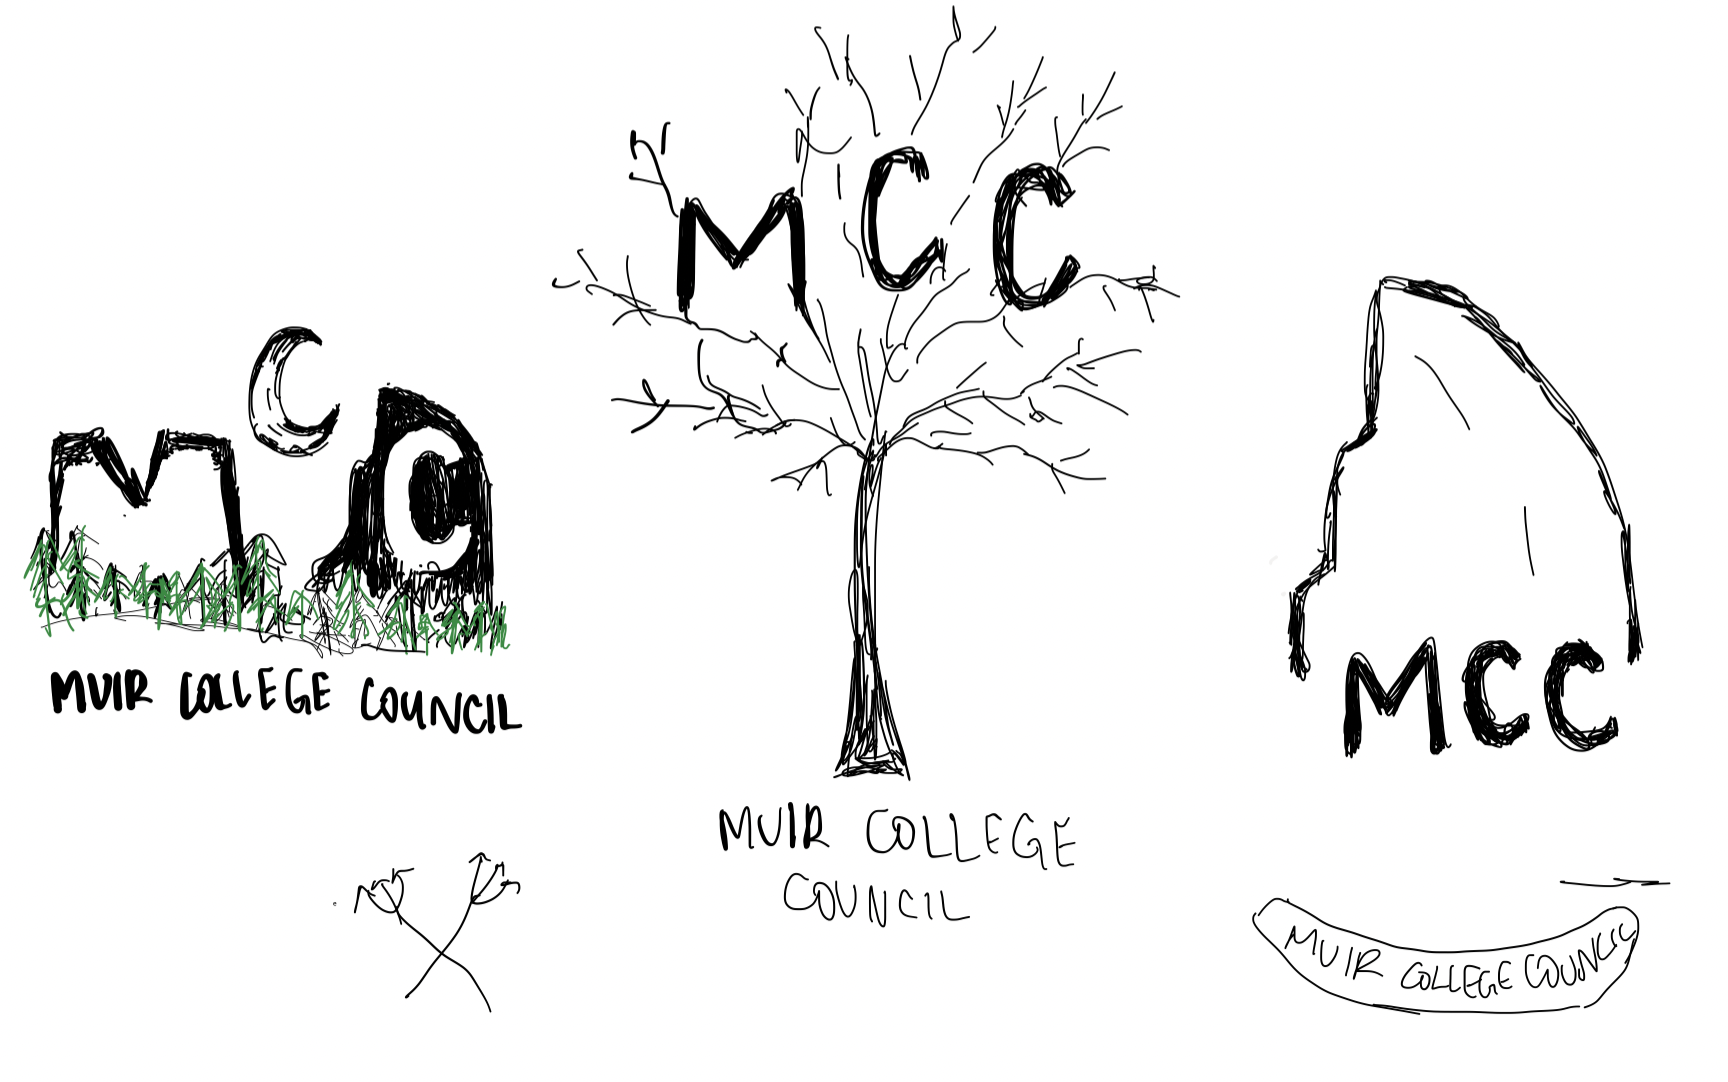 MCC
MUIR COLLEGE COUNCIL
MCC
MUIR COLLEGE
COUNCIL
MCC
MUIR COLLEGE COUNCIL